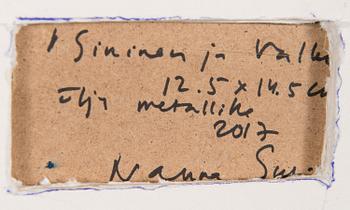 Sininen ja Valk
12.5 x 14.5 c
öljy metallille
2017
Nanna Susi